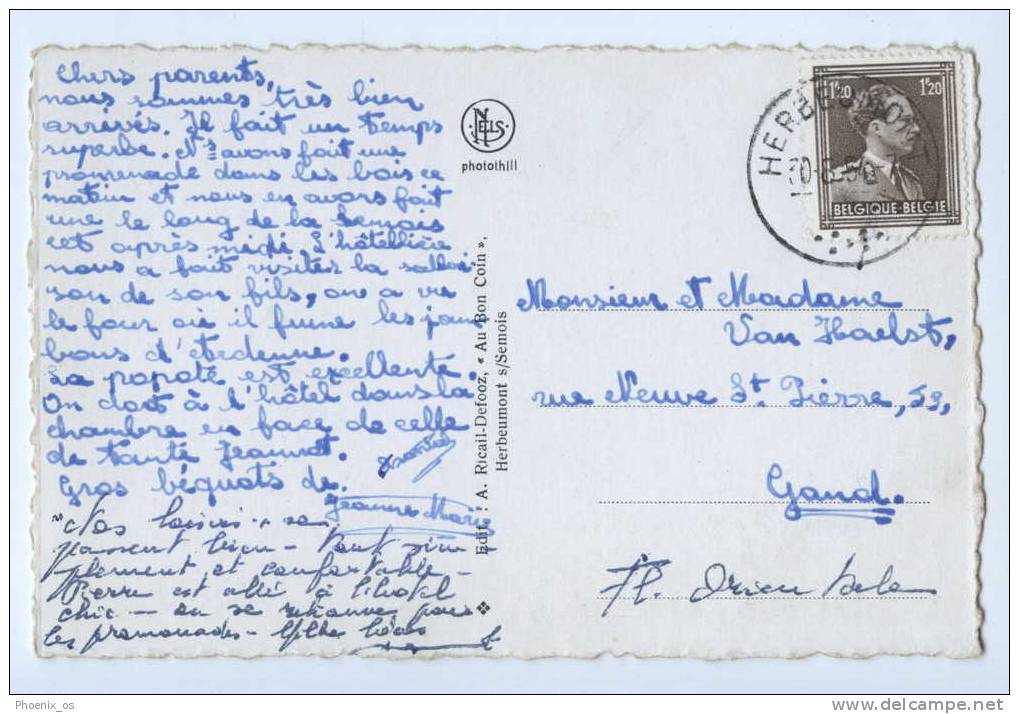 Chers parents,
nous sommes très bien
arrivés. Il fait un temps
superbe. Ns avons fait une
promenade dans les bois ce
matin et nous en avons fait
une le long de la Semois
cet après midi. L'hôtellière
nous a fait visiter la salai-
son de son fils, on a vu
le four où il fume les jam
bons d'Ardenne.
La popote est excellente.
On dort à l'hôtel dans la
chambre en face de celle
de tante Jeannot.
Gros béquots de
Jeanne Marie
Nos loisirs se
passent bien - Tout sim
plement et confortable -
Pierre est allé à l'hôtel
chic - on se retrouve pour
les promenades -
NELS
photothill
Edit. : A. Ricail-Defooz, « Au Bon Coin »,
Herbeumont s/Semois
1F20 1F20
BELGIQUE-BELGIE
HERBEUMONT
Monsieur et Madame
Van Haelst,
rue Neuve St. Pierre, 53,
Gand.
Phoenix_os
www.delcampe.net